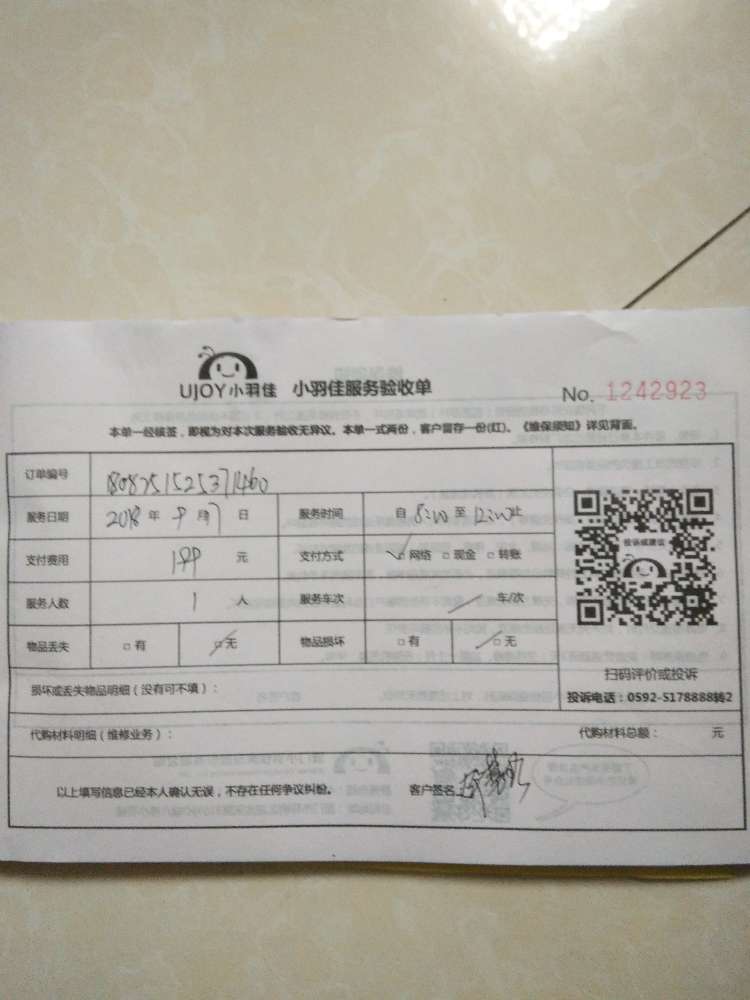 UJOY小羽佳 小羽佳服务验收单 No. 1242923
本单一经核签，即视为对本次服务验收无异议。本单一式两份，客户留存一份(红)。《维保须知》详见背面。
订单编号 1808251525371460
服务日期 2018年9月7日 服务时间 自8:00至12:00止
支付费用 199元 支付方式 网络 □现金 □转账
服务人数 1人 服务车次 车/次
物品丢失 □有 □无 物品损坏 □有 □无
投诉或建议
扫码评价或投诉
损坏或丢失物品明细（没有可不填）：
投诉电话：0592-5178888转2
代购材料明细（维修业务）： 代购材料总额： 元
以上填写信息已经本人确认无误，不存在任何争议纠纷。 客户签名